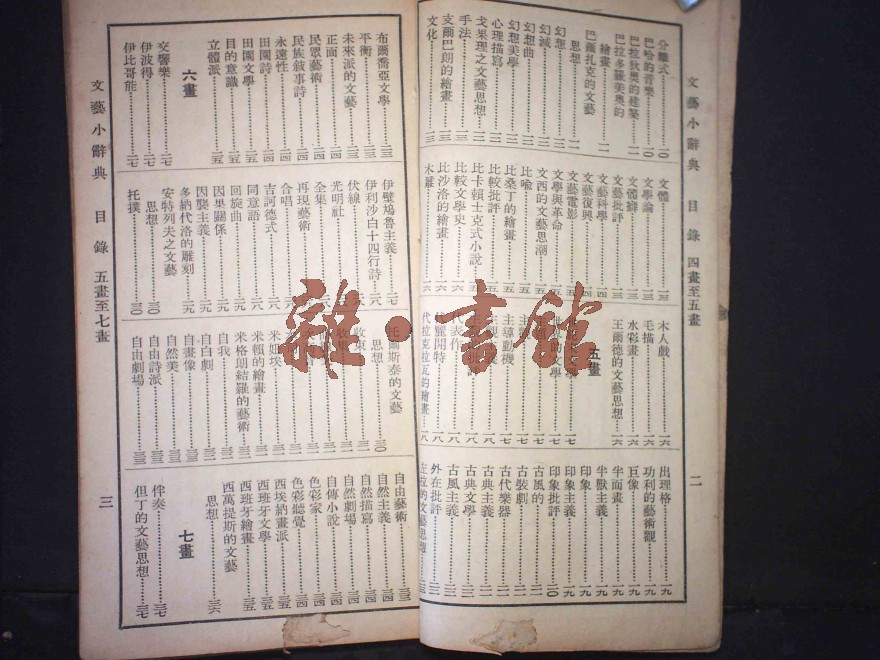 文藝小辭典 目錄 四畫至五畫
二
分離式……一〇
巴哈的音樂……一〇
巴拉狄奧的建築……一一
巴拉多羅美奧的
繪畫……一一
巴爾扎克的文藝
思想……一一
幻想……一一
幻滅……一二
幻想曲……一二
幻想美學……一二
心理描寫……一二
戈果理之文藝思想……一二
手法……一三
支爾巴朗的繪畫……一三
文化……一三
文體……一三
文學論……一三
文體辭……一三
文藝批評……一四
文藝科學……一四
文藝復興……一四
文藝電影……一五
文學與革命……一五
文西的文藝思潮……一五
比喻……一五
比桑丁的繪畫……一五
比較批評……一五
比卡賴士克式小說……一五
比較文學史……一六
比沙洛的繪畫……一六
木雕……一六
木人戲……一六
毛描……一六
水彩畫……一六
王爾德的文藝思想……一六
五畫
主導動機……一七
代表作……一八
代拉克拉瓦的繪畫……一八
出理格……一九
功利的藝術觀……一九
巨像……一九
半面畫……一九
半獸主義……一九
印象……一九
印象主義……一九
印象批評……二〇
古風的……二一
古裝劇……二一
古代樂器……二二
古典主義……二二
古典文學……二三
古風主義……二三
外在批評……二三
左拉的文藝思想……二三
布爾喬亞文學……二三
平衡……二三
未來派的文藝……二四
正面……二四
民眾藝術……二四
民族敘事詩……二四
永遠性……二四
田園詩……二四
田園文學……二五
目的意識……二五
立體派……二五
六畫
交響樂……二七
伊波得……二七
伊比哥能……二七
伊壁鳩魯主義……二七
伊利沙白十四行詩……二八
伏線……二八
光明社……二八
全集……二八
再現藝術……二八
合唱……二八
吉訶德式……二九
同意語……二九
回旋曲……二九
因果關係……二九
因襲主義……二九
多納代洛的雕刻……二九
安特列夫之文藝
思想……三〇
托樸……三〇
托爾斯泰的文藝
思想……三〇
收束……三一
米妞埃
米賴的繪畫
米格朗結羅的藝術
自我
自白劇
自畫像
自然美
自由詩派
自由劇場
自由藝術……三三
自然主義……三四
自然描寫……三四
自然劇場……三四
自傳小說……三四
色彩家……三四
色彩聽覺……三四
西埃納畫派……三五
西班牙文學……三五
西班牙繪畫……三五
西萬提斯的文藝
思想……三六
七畫
伴奏……三七
但丁的文藝思想……三七
文藝小辭典 目錄 五畫至七畫
三
雜·書館